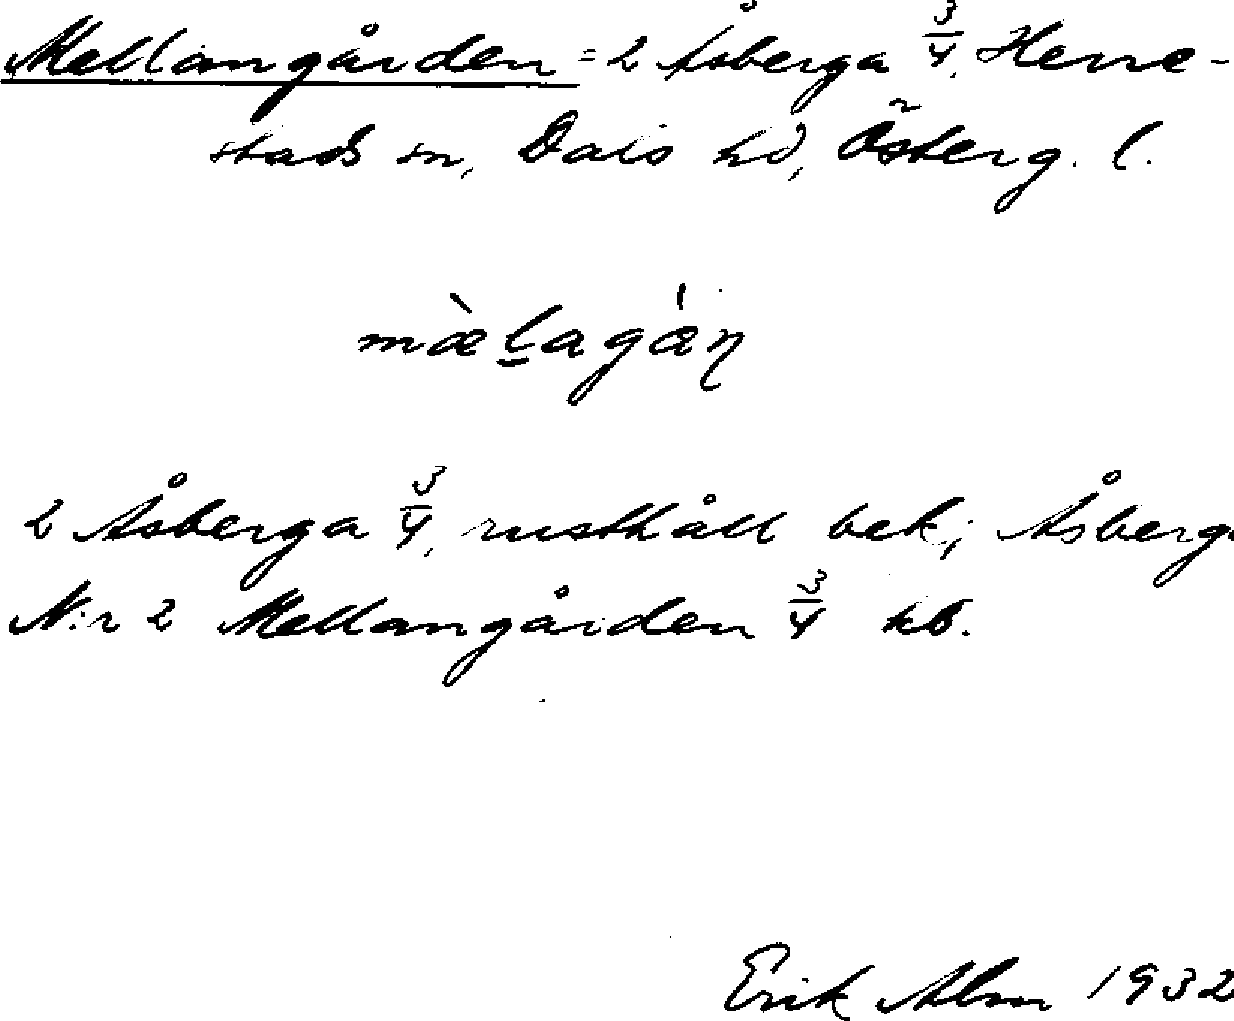 Mellangården = 2 Åsberga 3/4, Herre-
stads sn, Dals hd, Österg. l.
mæ̀l̠agǽn̥
2 Åsberga 3/4, rusthåll bek; Åsberga
N:r 2 Mellangården 3/4 kb.
Erik Alm 1932